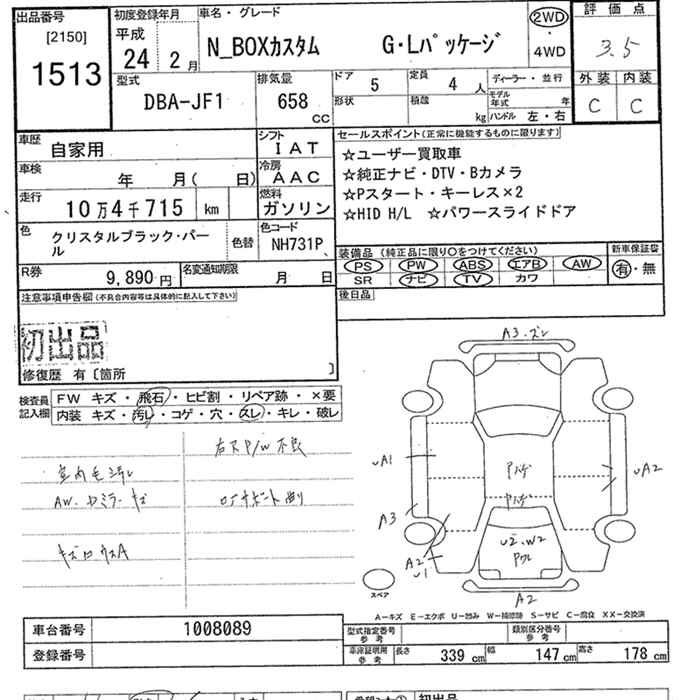 出品番号
[2150]
1513
初度登録年月
平成
24 2月
車名・グレード
N_BOXカスタム G・Lパッケージ
2WD
・
4WD
評価点
3.5
外装 内装
C C
型式
DBA-JF1
排気量
658
CC
ドア 5
定員 4人
ディーラー・並行
形状
積載 kg
モデル年式 年
ハンドル 左・右
車歴
自家用
シフト
IAT
車検
年 月( 日)
冷房
AAC
走行
10万4千715 km
燃料
ガソリン
色
クリスタルブラック・パール
色替
色コード
NH731P
R券
9,890円
名変通知期限
月 日
セールスポイント(正常に機能するものに限ります)
☆ユーザー買取車
☆純正ナビ・DTV・Bカメラ
☆Pスタート・キーレス×2
☆HID H/L ☆パワースライドドア
装備品(純正品に限り○をつけてください)
PS PW ABS エアB AW
SR ナビ TV カワ
新車保証書
有・無
後日品
注意事項申告欄(不具合内容等は具体的に記入して下さい)
初出品
修復歴 有〔箇所 〕
検査員
記入欄
FW キズ・飛石・ヒビ割・リペア跡・×要
内装 キズ・汚レ・コゲ・穴・スレ・キレ・破レ
A3
UA1
UA2
A3
A2
U1
U2.W2
A2
スペア
A−キズ E−エクボ U−凹み W−補修跡 S−サビ C−腐食 XX−交換済
車台番号 1008089
登録番号
型式指定番号
参考
類別区分番号
参考
車庫証明用
参考
長さ 339cm 幅 147cm 高さ 178cm
初出品